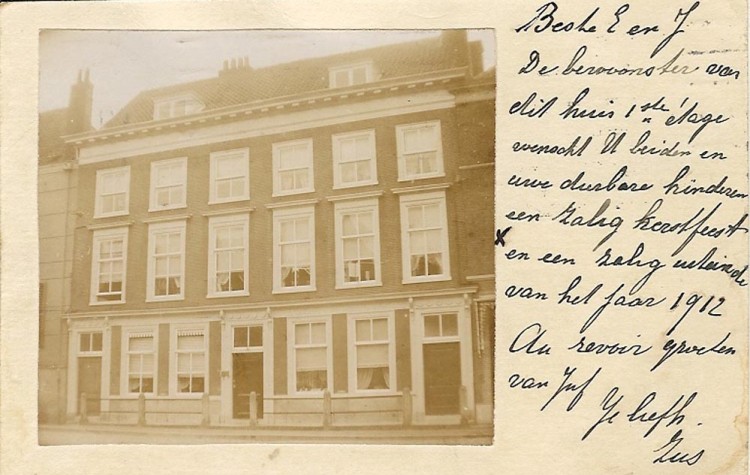 Beste E en J
De bewoonster van
dit huis 1ste étage
wenscht U beiden en
uwe durbare kinderen
een zalig kerstfeest
x en een zalig uiteinde
van het jaar 1912
Au revoir groeten
van Juf
Je liefh.
Zus